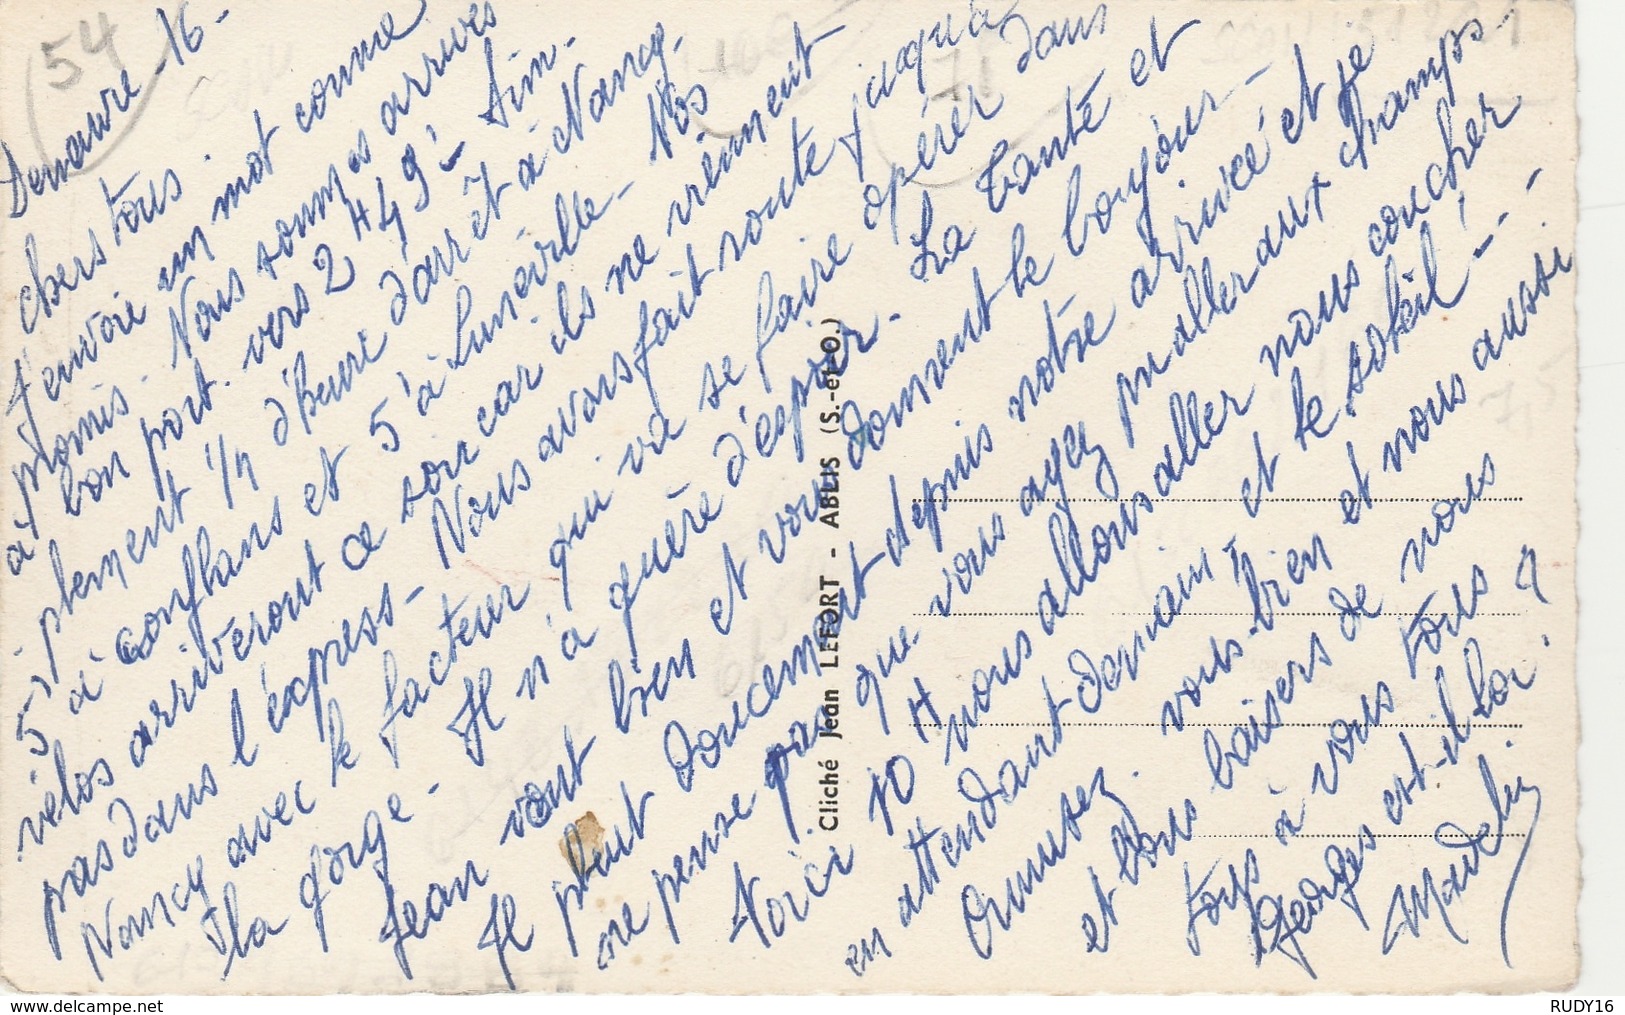 54
Demeure 16-
Chers tous.
J'envoie un mot comme
promis. Nous sommes arrivés
à bon port vers 2 H 49'. Sim-
plement 1/4 d'heure d'arrêt à Nancy.
5' à Conflans et 5' à Lunéville. Nos
vélos arriveront ce soir car ils ne viennent
pas dans l'express. Nous avons fait route jusqu'à
Nancy avec le facteur qui va se faire opérer dans
la gorge. Il n'a guère d'espoir. La tante et
Jean vont bien et vous donnent le bonjour.
Il pleut doucement depuis notre arrivée et je
ne pense pas que vous ayez pu aller aux champs.
Voici 10 H nous allons aller nous coucher
en attendant demain et le soleil!
Amusez-vous bien et nous aussi.
et bons baisers de nous
tous à vous tous
Georges est-il là?
Cliché Jean LEFORT - ABLIS (S.-et-O.)
delcampe.net
RUDY16